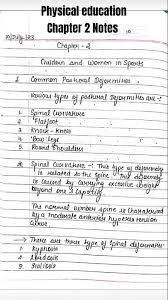 Physical education
Chapter 2 Notes
Chapter - 2
Children and Women in Sports
Common Postural Deformities
Various types of postural deformities are :-
1 Spinal Curvature
2 Flatfoot
3 Knock - Knees
4 Bow Legs
5 Round Shoulders
Spinal Curvature :- This type of deformity
is related to the spine. This deformity
is caused by carrying excessive weight
beyond one's capacity
The normal number spine is characterised
by a moderate
above
→ There are three type of spinal deformities
1 Kyphosis
2 Lordosis
3 Scoliosis